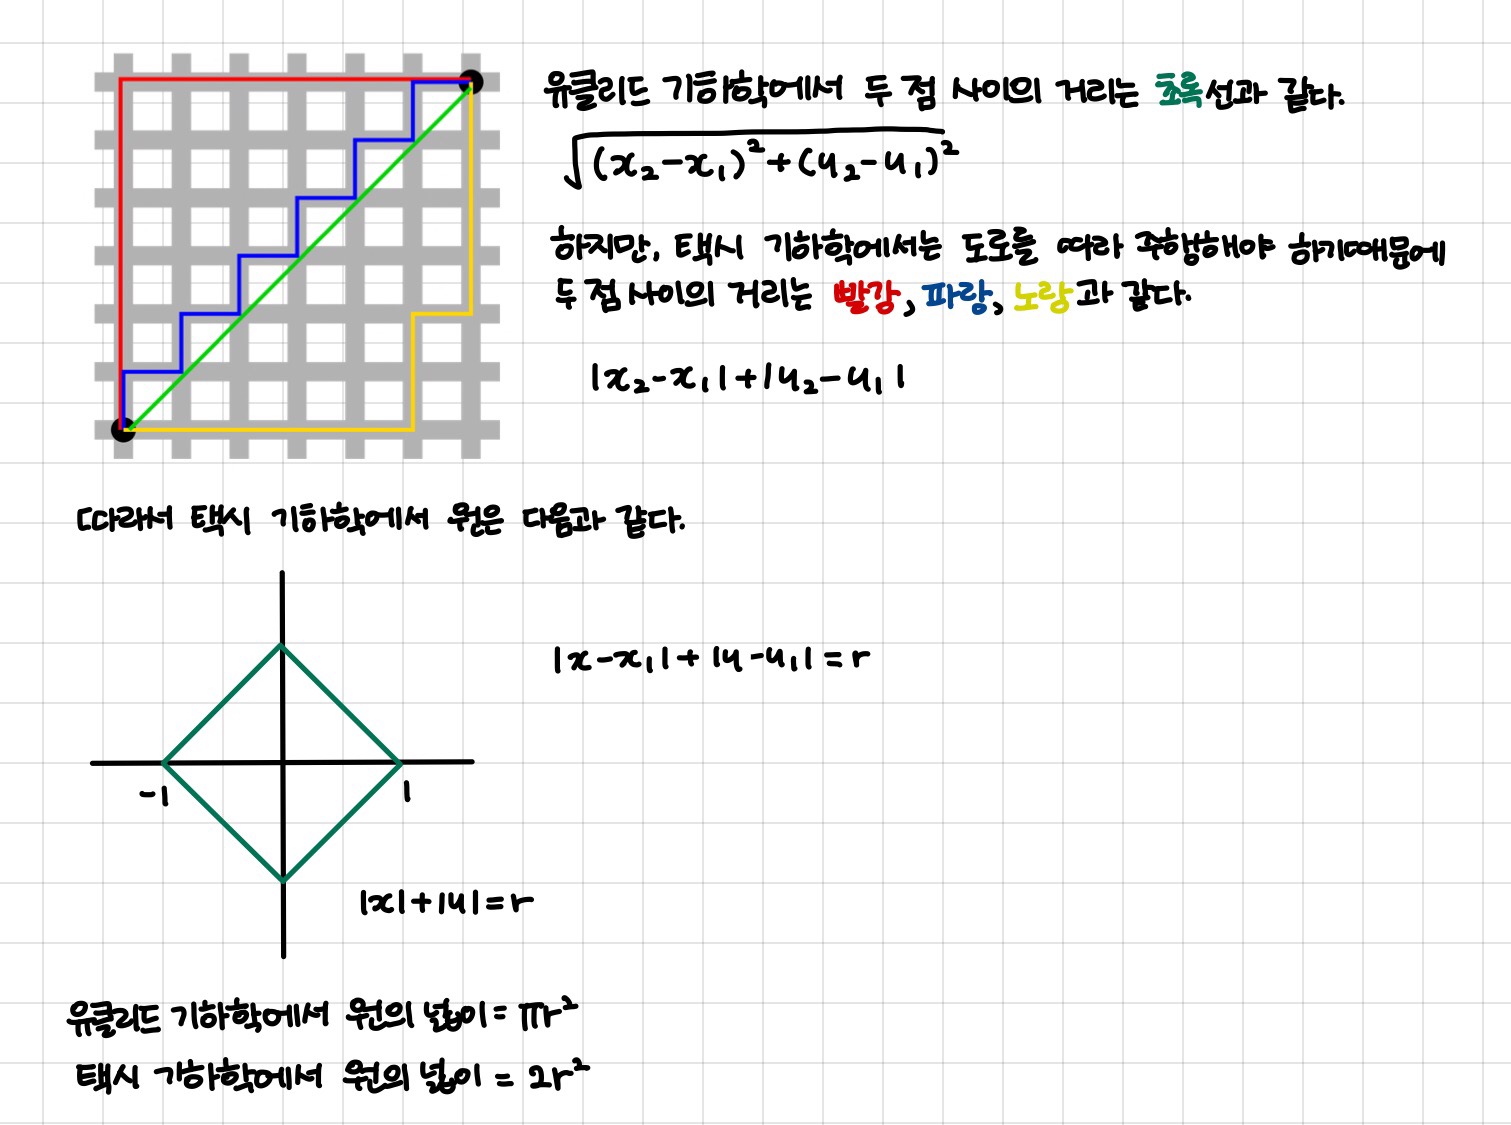 유클리드 기하학에서 두 점 사이의 거리는 초록선과 같다.
√((x₂-x₁)²+(y₂-y₁)²)
하지만, 택시 기하학에서는 도로를 따라 주행해야 하기때문에
두 점 사이의 거리는 빨강, 파랑, 노랑과 같다.
|x₂-x₁|+|y₂-y₁|
따라서 택시 기하학에서 원은 다음과 같다.
|x-x₁|+|y-y₁|=r
-1 1
|x|+|y|=r
유클리드 기하학에서 원의 넓이=πr²
택시 기하학에서 원의 넓이 = 2r²